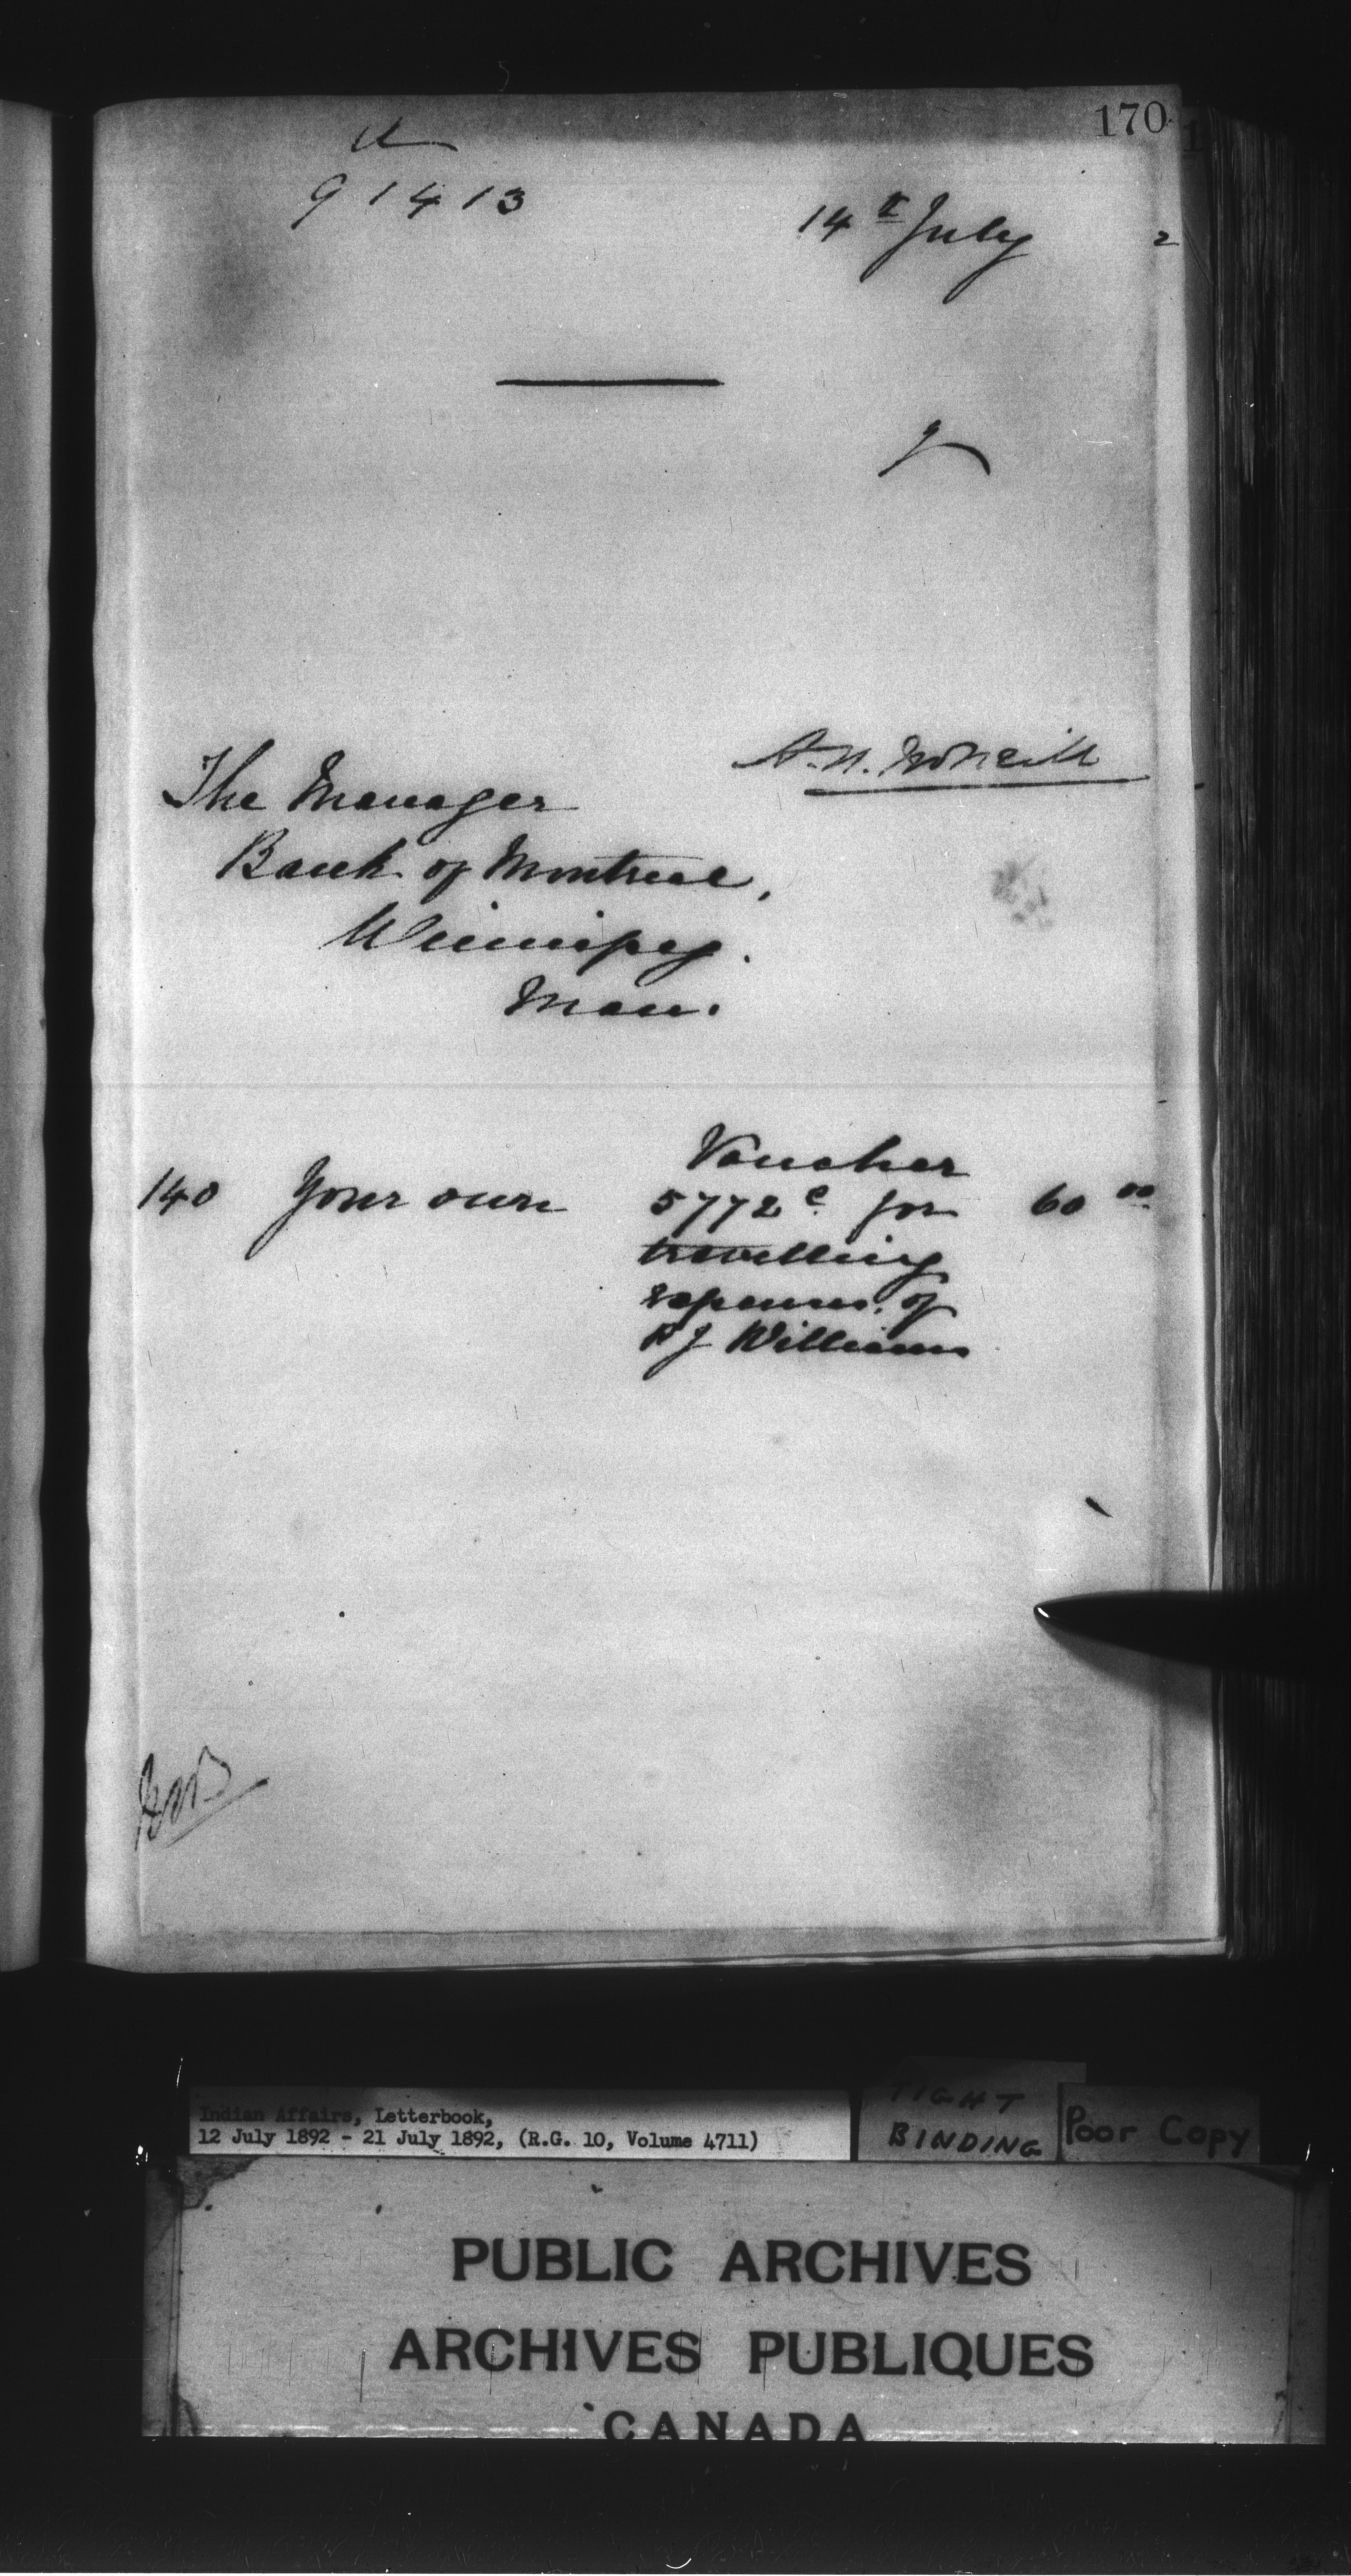 170
91413
14th July 2
A. N. McNeill
The Manager
Bank of Montreal,
Winnipeg.
Man.
Voucher
140 Your own 5772c for 60 00
travelling
expenses of
R J Williams
Indian Affairs, Letterbook,
12 July 1892 - 21 July 1892, (R.G. 10, Volume 4711)
TIGHT
BINDING
Poor Copy
PUBLIC ARCHIVES
ARCHIVES PUBLIQUES
CANADA